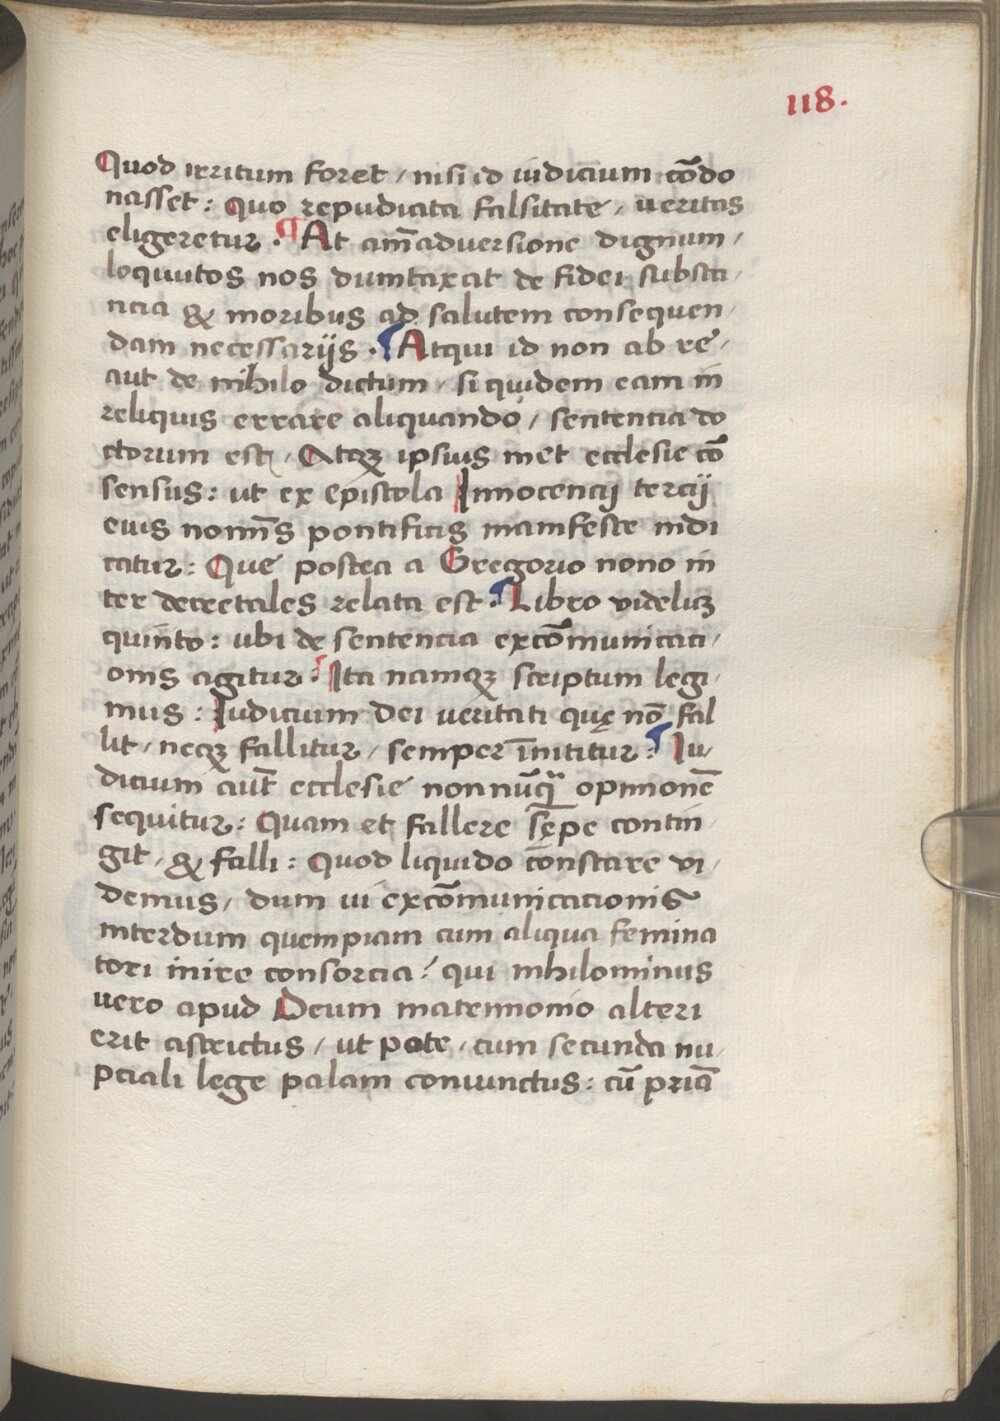 118.
Quod irritum foret / nisi id iudicium cōdo
nasset : quo repudiata falsitate / veritas
eligeretur . ¶ At aīmaduersione dignum /
loquutos nos dumtaxat de fidei substa/
ncia & moribus ad salutem consequen/
dam necessariis . ¶ Atqui id non ab re /
aut de nihilo dictum / siquidem eam in
reliquis errare aliquando / sentencia do
ctorum est / Atqꝫ ipsius met ecclesie cō
sensus : ut ex epistola Innocencij tercij
euis nomīs pontificis manifeste indi
catur : Que postea a Gregorio nono in
ter decretales relata est . ¶ Libro videlicꝫ
quinto : ubi de sentencia excōmunicaci/
onis agitur : ¶ Ita namqꝫ scriptum legi/
mus : Iudicium dei veritati quę nō fal
lit / neqꝫ fallitur / semper īnititur : ¶ Iu/
dicium aut̄ ecclesie nonnūq̄ opinionē
sequitur : Quam et fallere sępe contin/
git / & falli : Quod liquido constare vi/
demus / dum ui excōmunicationis
interdum quempiam cum aliqua femina
tori inire consorcia : qui nihilominus
uero apud Deum matrimonio alteri
erit astrictus / ut pote / cum secunda nu/
pciali lege palam coniunctus : cū priā